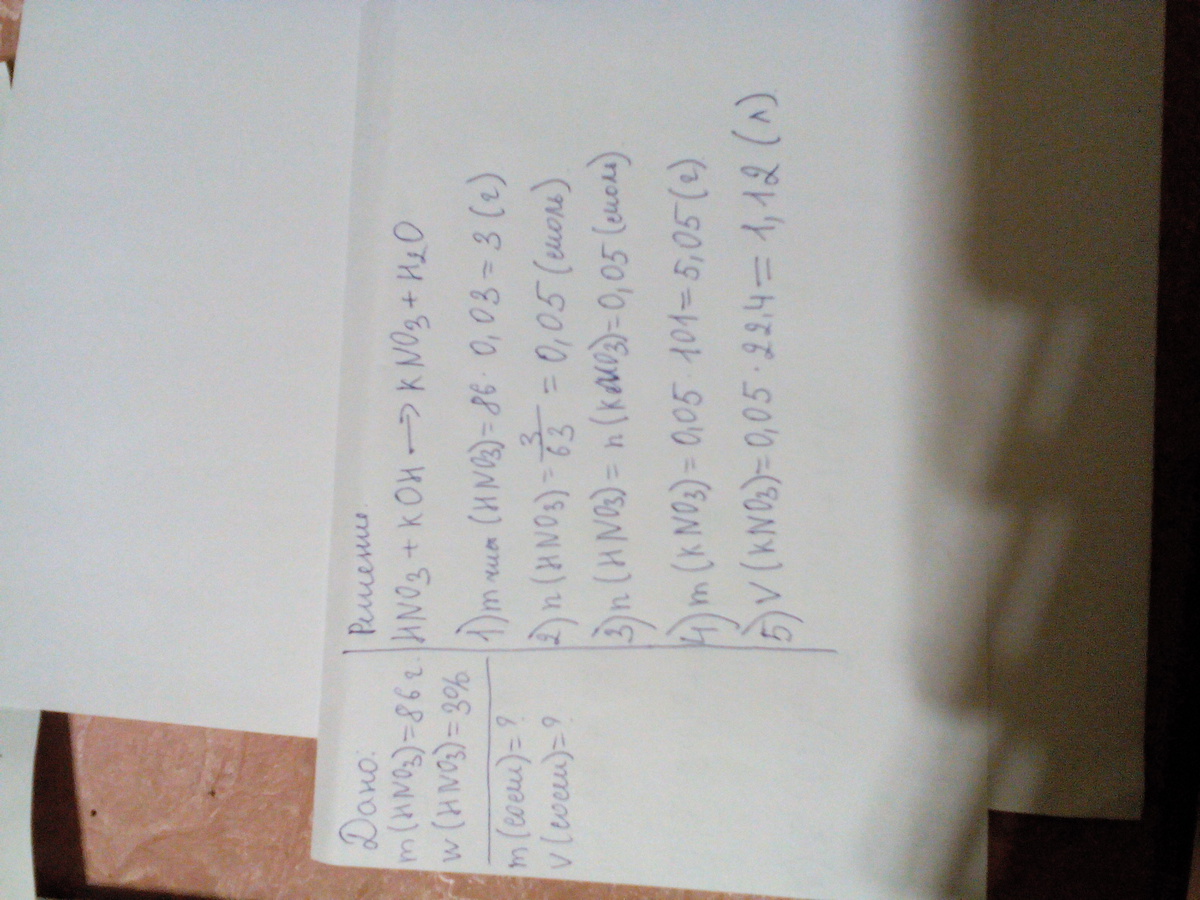 Дано:
m(HNO3)=86г.
w(HNO3)=3%
m(соли)=?
V(соли)=?
Решение.
HNO3+KOH→KNO3+H2O
1)m чист(HNO3)=86·0,03=3(г)
2)n(HNO3)=3/63=0,05(моль)
3)n(HNO3)=n(KNO3)=0,05(моль)
4)m(KNO3)=0,05·101=5,05(г)
5)V(KNO3)=0,05·22,4=1,12(л)